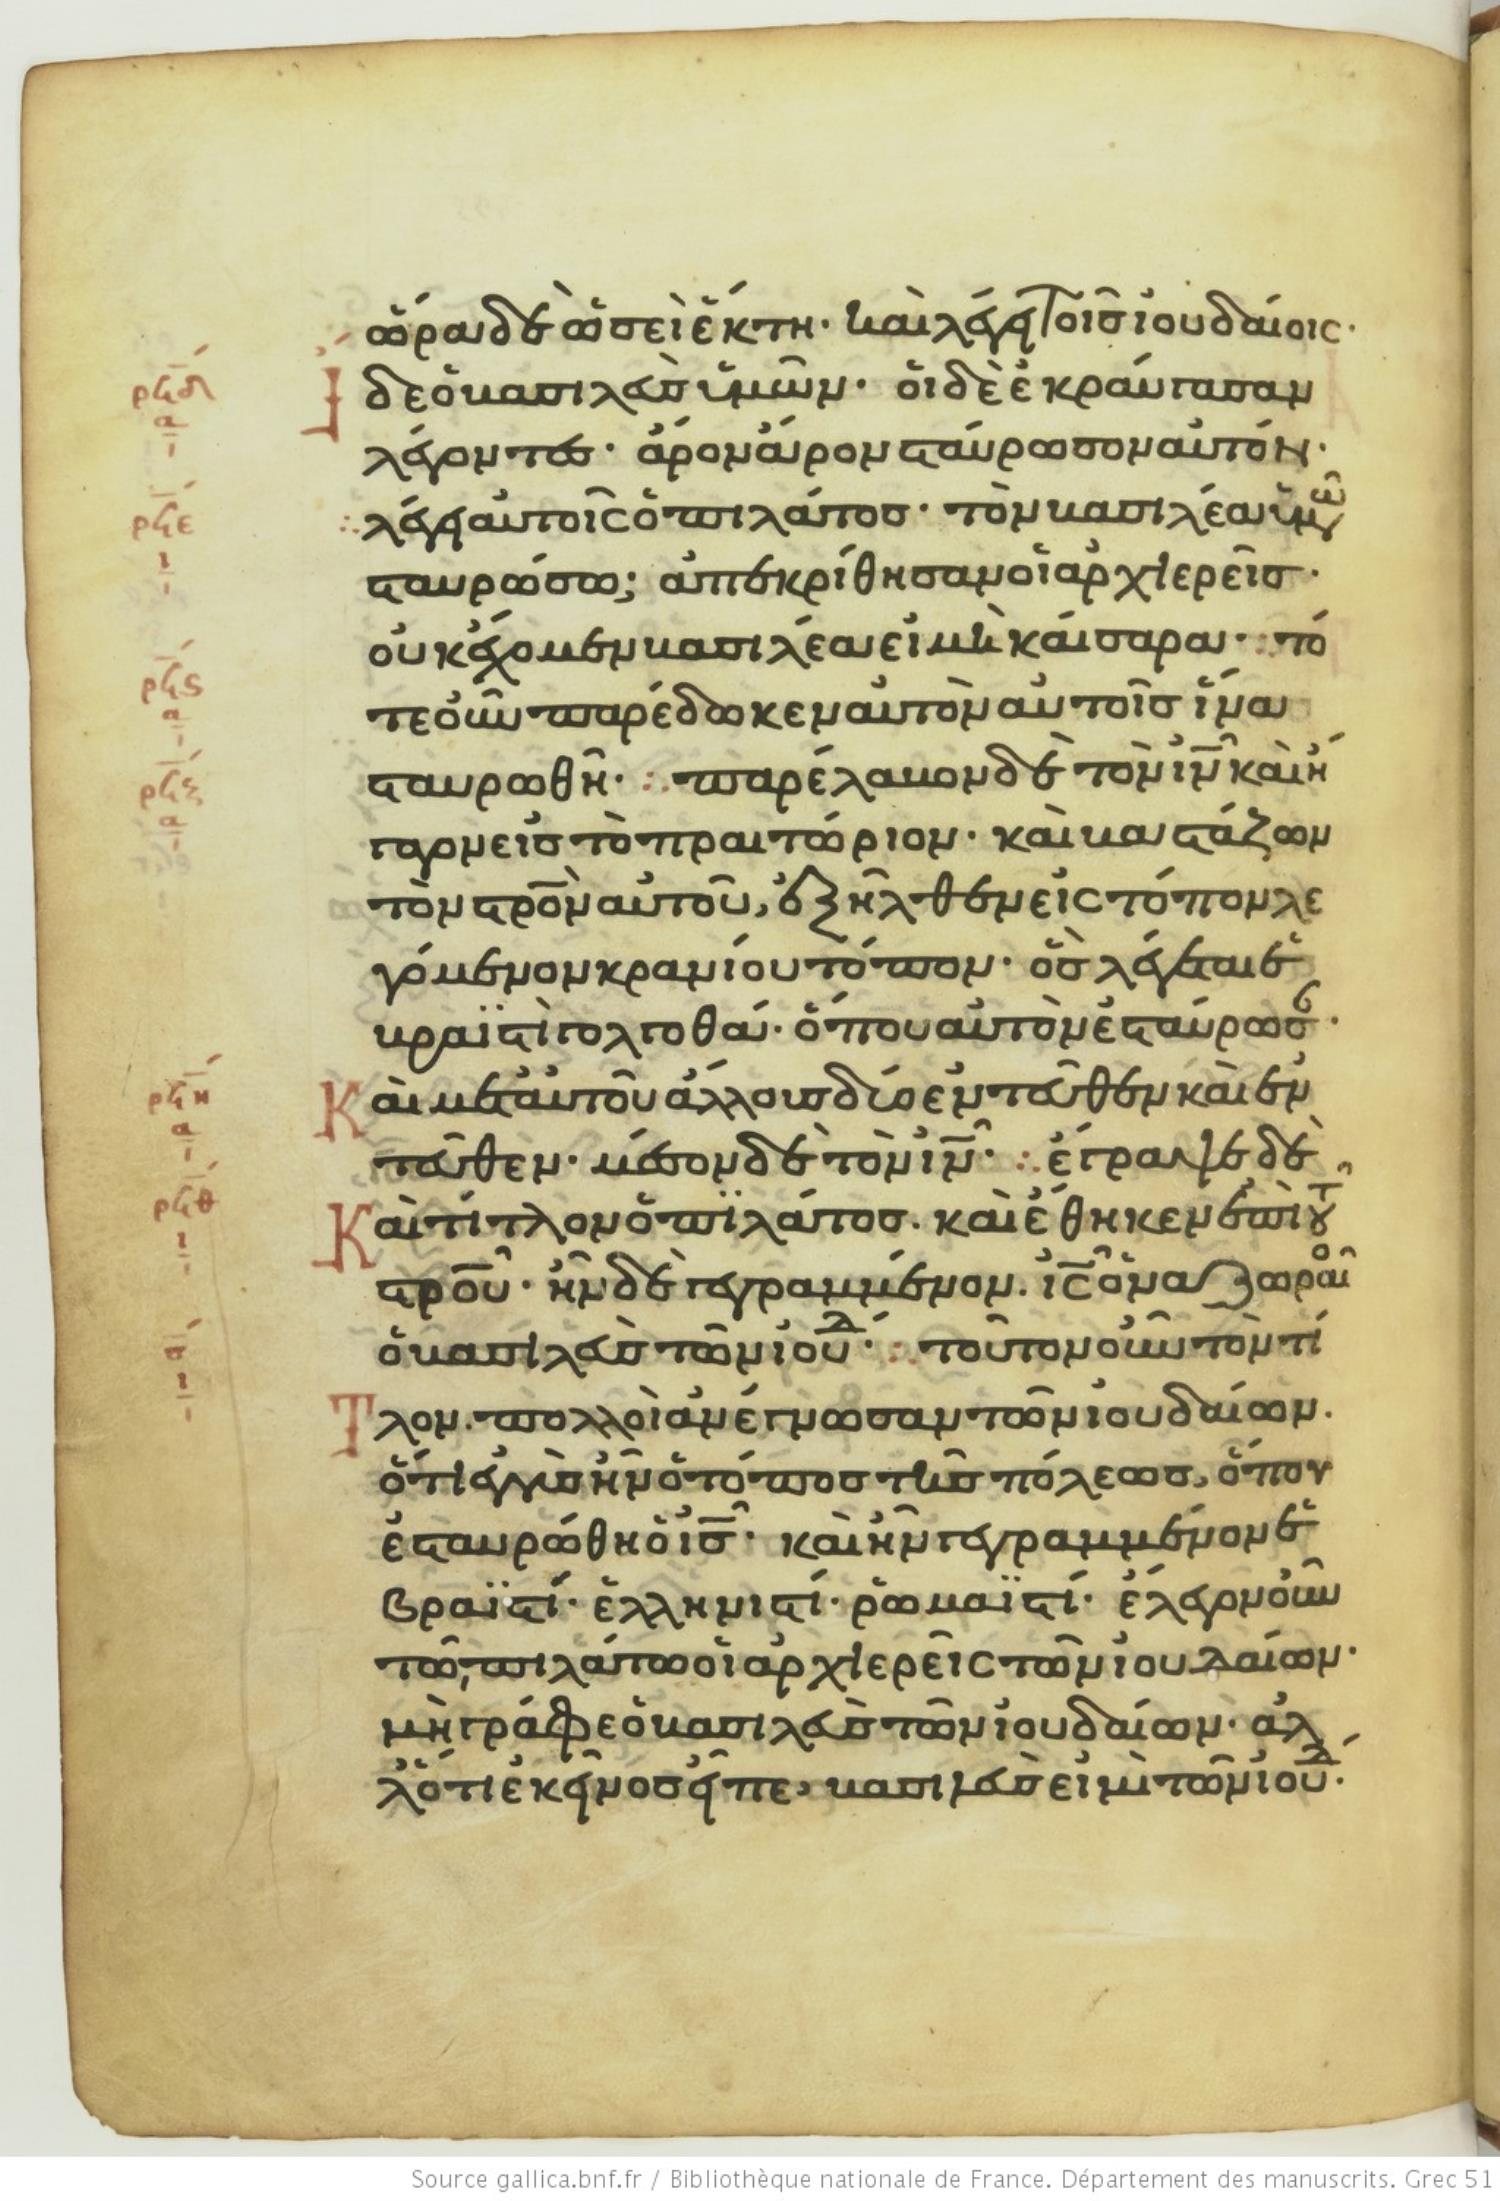 ὥρα δὲ ὡσεὶ ἕκτη· καὶ λέγει τοῖς ἰουδαίοις·
ρϟδ
α
Ἴδε ὁ βασιλεὺς ὑμῶν· οἱ δὲ ἐκραύγασαν
λέγοντες· ἆρον ἆρον σταύρωσον αὐτόν·
ρϟε
ι
λέγει αὐτοῖς ὁ πιλάτος· τὸν βασιλέα ὑμῶν
σταυρώσω; ἀπεκρίθησαν οἱ ἀρχιερεῖς·
οὐκ ἔχομεν βασιλέα εἰ μὴ καίσαρα· τό
ρϟς
α
τε οὖν παρέδωκεν αὐτὸν αὐτοῖς ἵνα
ρϟζ
α
σταυρωθῇ· παρέλαβον δὲ τὸν ιν καὶ ἤ
γαγον εἰς τὸ πραιτώριον· καὶ βαστάζων
τὸν στρον αὐτοῦ, ἐξῆλθεν εἰς τόπον λε
γόμενον κρανίου τόπον· ὃς λέγεται ἑ
βραϊστὶ γολγοθά· ὅπου αὐτὸν ἐσταύρωσ·
ρϟη
α
Καὶ μετ αὐτοῦ ἄλλους δύο ἐντεῦθεν καὶ ἐν
τεῦθεν· μέσον δὲ τὸν ιν· ἔγραψε δὲ
ρϟθ
ι
Καὶ τίτλον ὁ πιλάτος. καὶ ἔθηκεν ἐπὶ τοῦ
στρου· ἦν δὲ γεγραμμένον. ις ὁ ναζωραῖ
ὁ βασιλεὺς τῶν ιουδ· τοῦτον οὖν τὸν τί
σ
ι
Τλον. πολλοὶ ἀνέγνωσαν τῶν ἰουδαίων.
ὅτι ἐγγὺς ἦν ὁ τόπος τῆς πόλεως, ὅπου
ἐσταυρώθη ὁ ις· καὶ ἦν γεγραμμένον ἑ
βραϊστί· ἑλληνιστί· ῥωμαϊστί· ἔλεγον οὖν
τῷ πιλάτῳ οἱ ἀρχιερεῖς τῶν ἰουδαίων·
μὴ γράφε ὁ βασιλεὺς τῶν ἰουδαίων· ἀλ
λ ὅτι ἐκεῖνος εἶπε, βασιλεύς εἰμι τῶν ιουδ·
Source gallica.bnf.fr / Bibliothèque nationale de France. Département des manuscrits. Grec 51